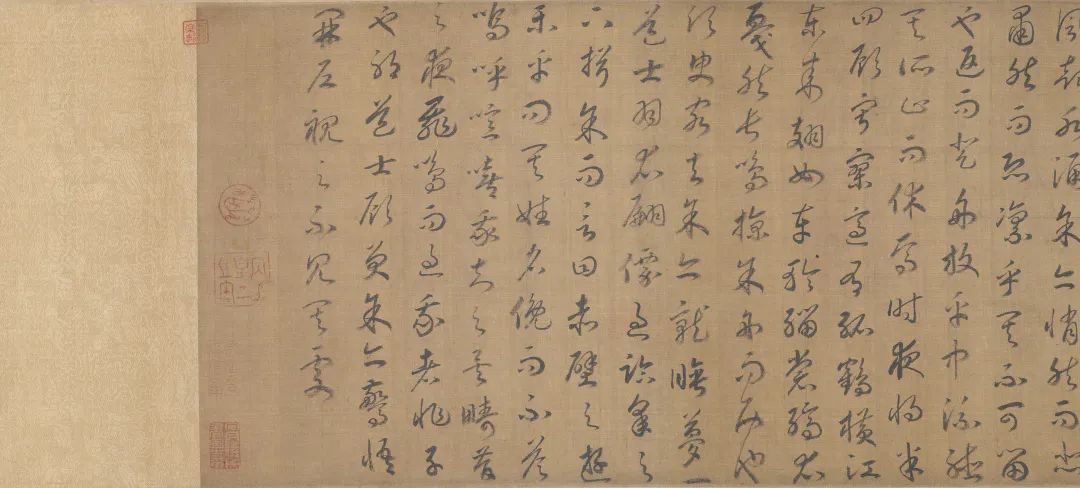 風起水涌余亦悄然而悲
肅然而恐凜乎其不可留
也返而登舟放乎中流聽
其所止而休焉時夜將半
四顧寂寥適有孤鶴橫江
東來翅如車輪裳縞衣
戛然長鳴掠余舟而西也
須臾客去余亦就睡夢一
道士羽衣翩僊過臨皋之
下揖余而言曰赤壁之遊
樂乎問其姓名俛而不答
嗚呼噫嘻我知之矣疇昔
之夜飛鳴而過我者非子
也耶道士顧笑余亦驚悟
開戶視之不見其處